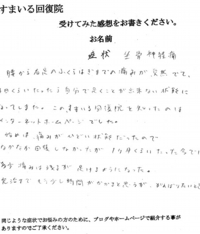 すまいる回復院
受けてみた感想をお書きください。
お名前
症状 坐骨神経痛
腰から右足のふくらはぎまでの痛みが
自分で歩くことが出来ない状態に
なってました。このすまいる回復院を知ったのは
インターネットホームページでした。
始めは痛みがひどい状態だったので
なかなか回復しなかったが 1ヶ月くらいたった
痛みは残るが 歩けるようになった。
完治まで もう少し時間がかかると思うが、がんばりたい
同じような症状でお悩みの方のために、ブログやホームページで紹介する事が
ありますのでご了承ください。